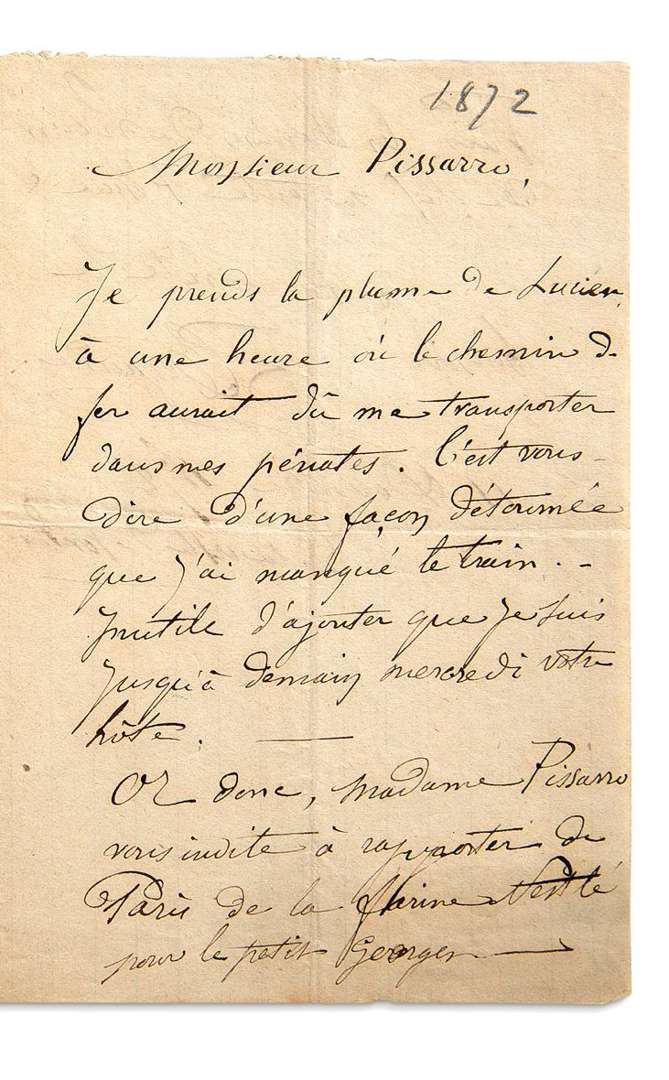 1872
Monsieur Pissarro,
Je prends la plume de Lucien,
à une heure où le chemin de
fer aurait dû me transporter
dans mes pénates. C'est vous
dire d'une façon détournée
que j'ai manqué le train. -
Inutile d'ajouter que je suis
jusqu'à demain mercredi votre
hôte. —
Or donc, Madame Pissarro
vous invite à rapporter de
Paris de la farine Nestlé
pour le petit Georges —